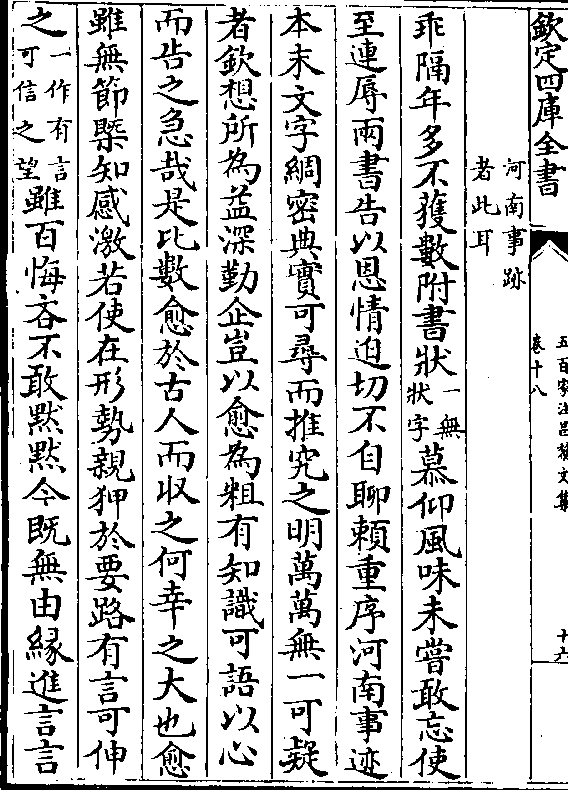 欽定四庫全書
五百家注昌黎文集
卷十八
十六
河南事跡
者此耳
乖隔年多不獲數附書狀一無狀字慕仰風味未嘗敢忘使
至連辱兩書告以恩情迫切不自聊賴重序河南事迹
本末文字綢密典實可尋而推究之明萬萬無一可疑
者欽想所為益深勤企豈以愈為粗有知識可語以心
而告之急哉是比數愈於古人而収之何幸之大也愈
雖無節槩知感激若使在形勢親狎於要路有言可伸
之一作有言可信之望雖百悔吝不敢黙黙今既無由緣進言言